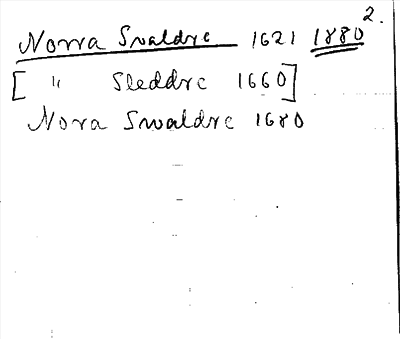 Norra Svaldre 1621 1880 2.
[ " Sleddre 1660]
Nora Swaldre 1680